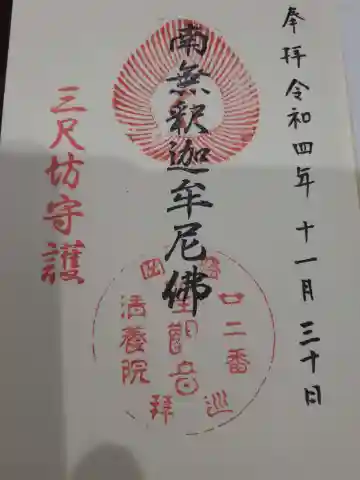 奉拝 令和四年 十一月 三十日
南無釈迦牟尼佛
三尺坊守護
廿二番
聖観音
活養院
巡拝